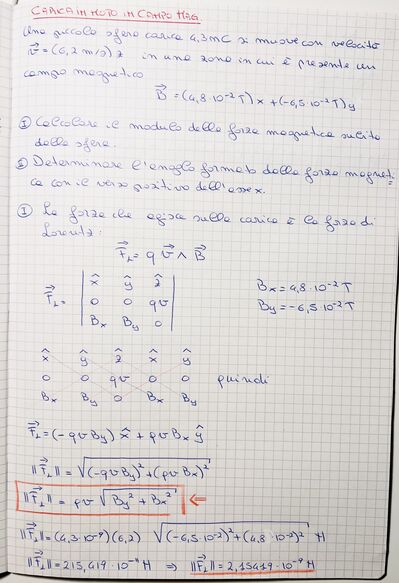 CARICA IN MOTO IN CAMPO MAG.
Una piccola sfera carica 4,3mC si muove con velocità
v⃗ = (6,2 m/s) ẑ in una zona in cui è presente un
campo magnetico
B⃗ = (4,8·10⁻² T) x + (-6,5·10⁻² T) y
① Calcolare il modulo della forza magnetica subita
dalla sfera.
② Determinare l'angolo formato dalla forza magneti-
ca con il verso positivo dell'asse x.
① La forza che agisce sulla carica è la forza di
Lorentz:
F⃗L = q v⃗ ∧ B⃗
F⃗L = | x̂ ŷ ẑ |
| 0 0 qv |
| Bx By 0 |
Bx = 4,8·10⁻² T
By = -6,5·10⁻² T
x̂ ŷ ẑ x̂ ŷ
0 0 qv 0 0 quindi
Bx By 0 Bx By
F⃗L = (-qvBy) x̂ + qvBx ŷ
||F⃗L|| = √(-qvBy)² + (qvBx)²
||F⃗L|| = qv √By² + Bx² ⇐
||F⃗L|| = (4,3·10⁻⁹)(6,2) √(-6,5·10⁻²)² + (4,8·10⁻²)² N
||F⃗L|| = 215,419·10⁻¹¹ N ⇒ ||F⃗L|| = 2,15419·10⁻⁹ N